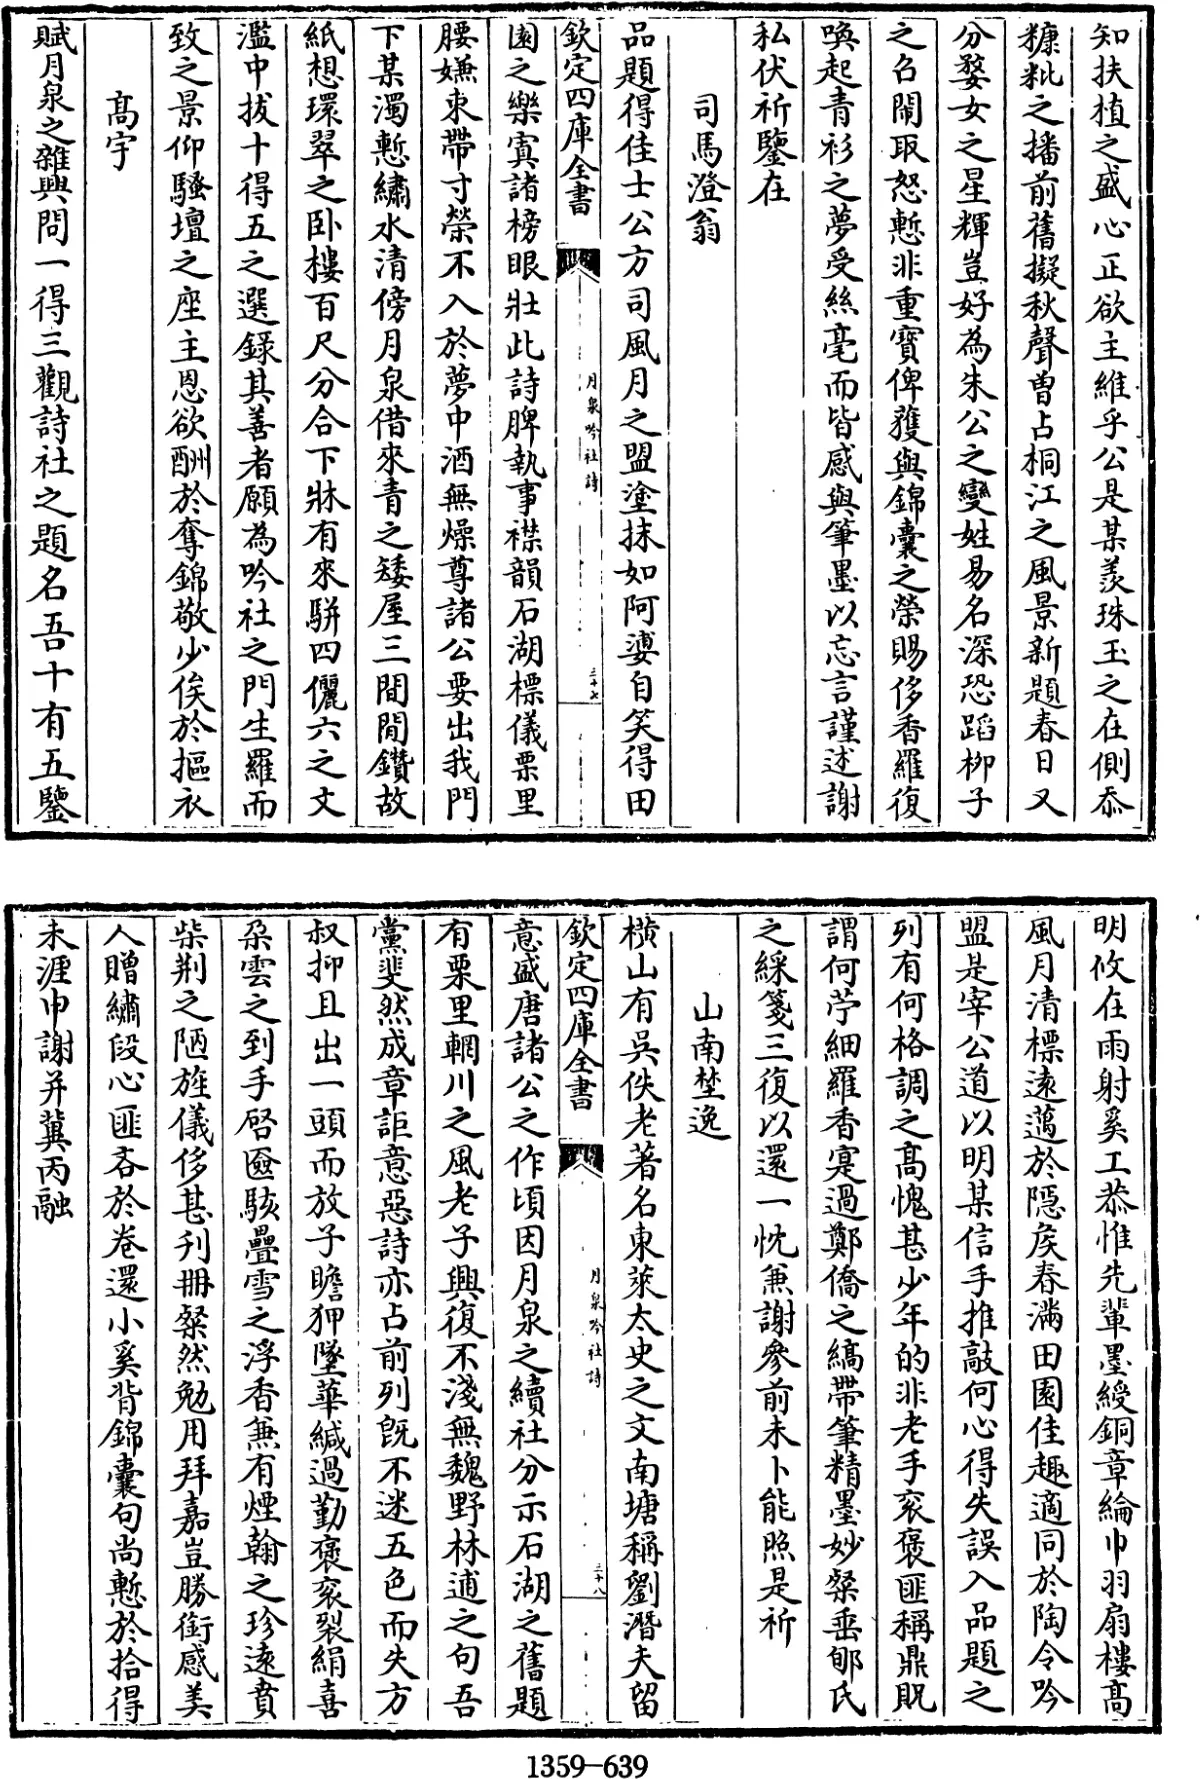 知扶植之盛心正欲主維乎公是某羨珠玉之在側忝
糠粃之播前舊擬秋聲曾占桐江之風景新題春日又
分婺女之星輝豈好為朱公之變姓易名深恐蹈柳子
之召鬧取怒慙非重寳俾獲與錦囊之榮賜侈香羅復
喚起青衫之夢受絲毫而皆感與筆墨以忘言謹述謝
私伏祈鑒在
司馬澄翁
品題得佳士公方司風月之盟塗抹如阿婆自笑得田
欽定四庫全書
月泉吟社詩
三十七
園之樂寘諸榜眼壯此詩脾執事襟韻石湖標儀栗里
腰嫌束帶寸榮不入於夢中酒無燥尊諸公要出我門
下某濁慙繡水清傍月泉借來青之矮屋三間閒鑽故
紙想環翠之卧樓百尺分合下牀有來駢四儷六之文
濫中拔十得五之選錄其善者願為吟社之門生羅而
致之景仰騷壇之座主恩欲酬於奪錦敬少俟於摳衣
髙宇
賦月泉之雜興問一得三觀詩社之題名吾十有五鑒
明攸在雨射奚工恭惟先輩墨綬銅章綸巾羽扇樓髙
風月清標逺邁於隱矦春滿田園佳趣適同於陶令吟
盟是宰公道以明某信手推敲何心得失誤入品題之
列有何格調之髙愧甚少年的非老手衮褒匪稱鼎貺
謂何苧細羅香寔過鄭僑之縞帶筆精墨妙粲垂郇氏
之綵箋三復以還一忱兼謝參前未卜能照是祈
山南埜逸
橫山有吳佚老著名東萊太史之文南塘稱劉潛夫留
欽定四庫全書
月泉吟社詩
三十八
意盛唐諸公之作頃因月泉之續社分示石湖之舊題
有栗里輞川之風老子興復不淺無魏野林逋之句吾
黨斐然成章詎意惡詩亦占前列旣不迷五色而失方
叔抑且出一頭而放子瞻狎墜華緘過勤褒衮裂絹喜
朶雲之到手啓匳駭疊雪之浮香兼有煙翰之珍逺賁
柴荆之陋旌儀侈甚刋冊粲然勉用拜嘉豈勝銜感美
人贈繡段心匪吝於卷還小奚背錦囊句尚慙於拾得
未涯申謝并冀丙融
1359-639